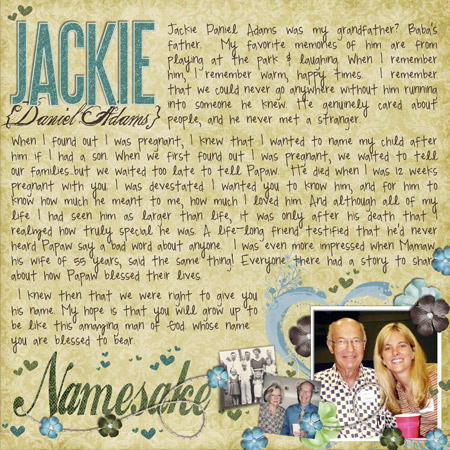 JACKIE
{Daniel Adams}
Jackie Daniel Adams was my grandfather? Baba's
father. My favorite memories of him are from
playing at the park & laughing. When I remember
him, I remember warm, happy times. I remember
that we could never go anywhere without him running
into someone he knew. He genuinely cared about
people, and he never met a stranger.
When I found out I was pregnant, I knew that I wanted to name my child after
him if I had a son. When we first found out I was pregnant, we waited to tell
our families...but we waited too late to tell Papaw. He died when I was 12 weeks
pregnant with you. I was devestated. I wanted you to know him, and for him to
know how much he meant to me, how much I loved him. And although all of my
life I had seen him as larger than life, it was only after his death that I
realized how truly special he was. A life-long friend testified that he'd never
heard Papaw say a bad word about anyone. I was even more impressed when Mamaw,
his wife of 55 years, said the same thing! Everyone there had a story to share
about how Papaw blessed their lives.
I knew then that we were right to give you
his name. My hope is that you will grow up to
be like this amazing man of God whose name
you are blessed to bear.
Namesake